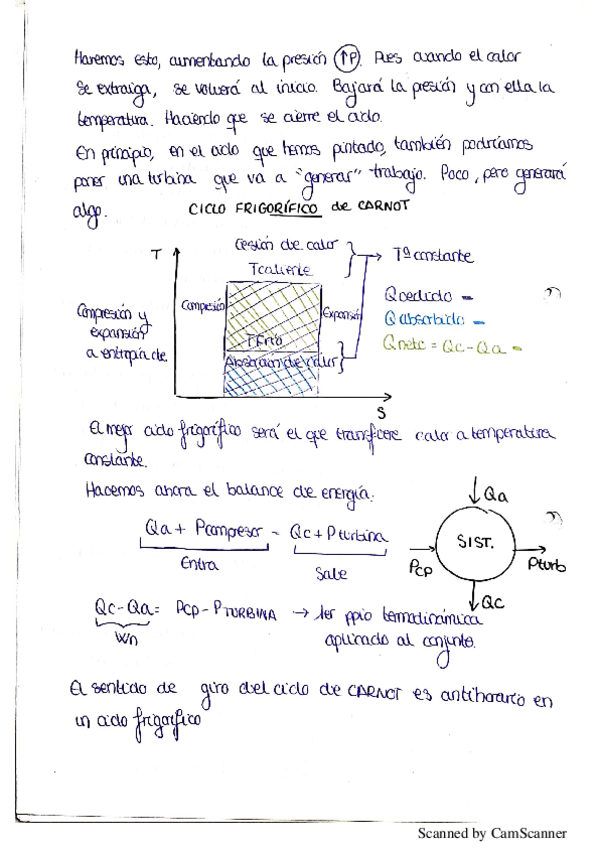 Haremos esto, aumentando la presión (↑P). Pues cuando el calor
se extraiga, se volverá al inicio. Bajará la presión y con ella la
temperatura. Haciendo que se cierre el ciclo.
En principio, en el ciclo que hemos pintado, también podríamos
poner una turbina que va a "generar" trabajo. Poco, pero generará
algo.
CICLO FRIGORÍFICO de CARNOT
Cesión de calor
T
Tcaliente
Tª constante
Compresión y
expansión
a entropía cte
Compresión
Expansión
TFrío
Absorción de calor
Qcedido -
Qabsorbido -
Qneto = Qc-Qa -
S
El mejor ciclo frigorífico será el que transfiere calor a temperatura
constante.
Hacemos ahora el balance de energía:
Qa + Pcompresor = Qc + Pturbina
Entra
Sale
Qa
SIST.
Pcp
Pturb
Qc
Qc-Qa = Pcp - PTURBINA → 1er ppio termodinámica
aplicado al conjunto.
Wn
El sentido de giro del ciclo de CARNOT es antihorario en
un ciclo frigorífico
Scanned by CamScanner